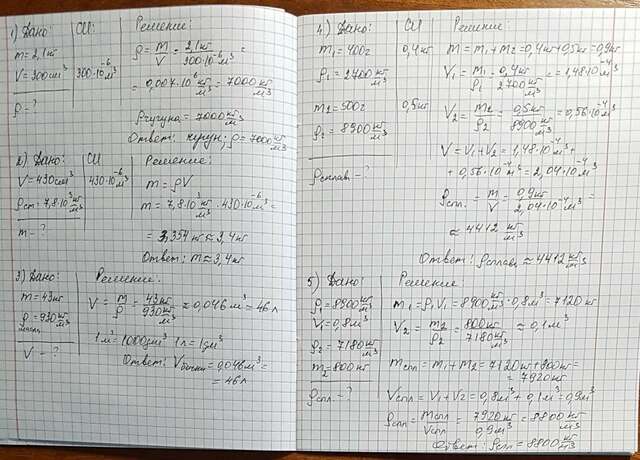 1) Дано:
m = 2,1кг
V = 300см³
ρ = ?
СИ:
300·10⁻⁶м³
Решение:
ρ = m/V = 2,1кг/300·10⁻⁶м³ =
= 0,007·10⁶ кг/м³ = 7000 кг/м³
ρчугуна = 7000 кг/м³
Ответ: чугун; ρ = 7000 кг/м³
2) Дано:
V = 430см³
ρст = 7,8·10³ кг/м³
m - ?
СИ
430·10⁻⁶м³
Решение:
m = ρV
m = 7,8·10³ кг/м³ · 430·10⁻⁶м³ =
= 3,354кг ≈ 3,4кг
Ответ: m ≈ 3,4кг
3) Дано:
m = 43кг
ρ = 930 кг/м³
V - ?
Решение:
V = m/ρ = 43кг/930 кг/м³ ≈ 0,046м³ = 46л
1м³ = 1000дм³ 1л = 1дм³
Ответ: Vбочки = 0,046м³ =
= 46л
4) Дано:
m₁ = 400г
ρ₁ = 2700 кг/м³
m₂ = 500г
ρ₂ = 8900 кг/м³
ρсплав - ?
СИ
0,4кг
0,5кг
Решение:
m = m₁ + m₂ = 0,4кг + 0,5кг = 0,9кг
V₁ = m₁/ρ₁ = 0,4кг/2700 кг/м³ = 1,48·10⁻⁴м³
V₂ = m₂/ρ₂ = 0,5кг/8900 кг/м³ = 0,56·10⁻⁴м³
V = V₁ + V₂ = 1,48·10⁻⁴м³ +
+ 0,56·10⁻⁴м³ = 2,04·10⁻⁴м³
ρспл. = m/V = 0,9кг/2,04·10⁻⁴м³ =
≈ 4412 кг/м³
Ответ: ρсплав ≈ 4412 кг/м³
5) Дано:
ρ₁ = 8900 кг/м³
V₁ = 0,8м³
ρ₂ = 7180 кг/м³
m₂ = 800кг
ρспл - ?
Решение
m₁ = ρ₁V₁ = 8900 кг/м³ · 0,8м³ = 7120кг
V₂ = m₂/ρ₂ = 800кг/7180 кг/м³ ≈ 0,1м³
mспл = m₁ + m₂ = 7120кг + 800кг =
= 7920кг
Vспл = V₁ + V₂ = 0,8м³ + 0,1м³ = 0,9м³
ρспл = mспл/Vспл = 7920кг/0,9м³ = 8800 кг/м³
Ответ: ρспл = 8800 кг/м³